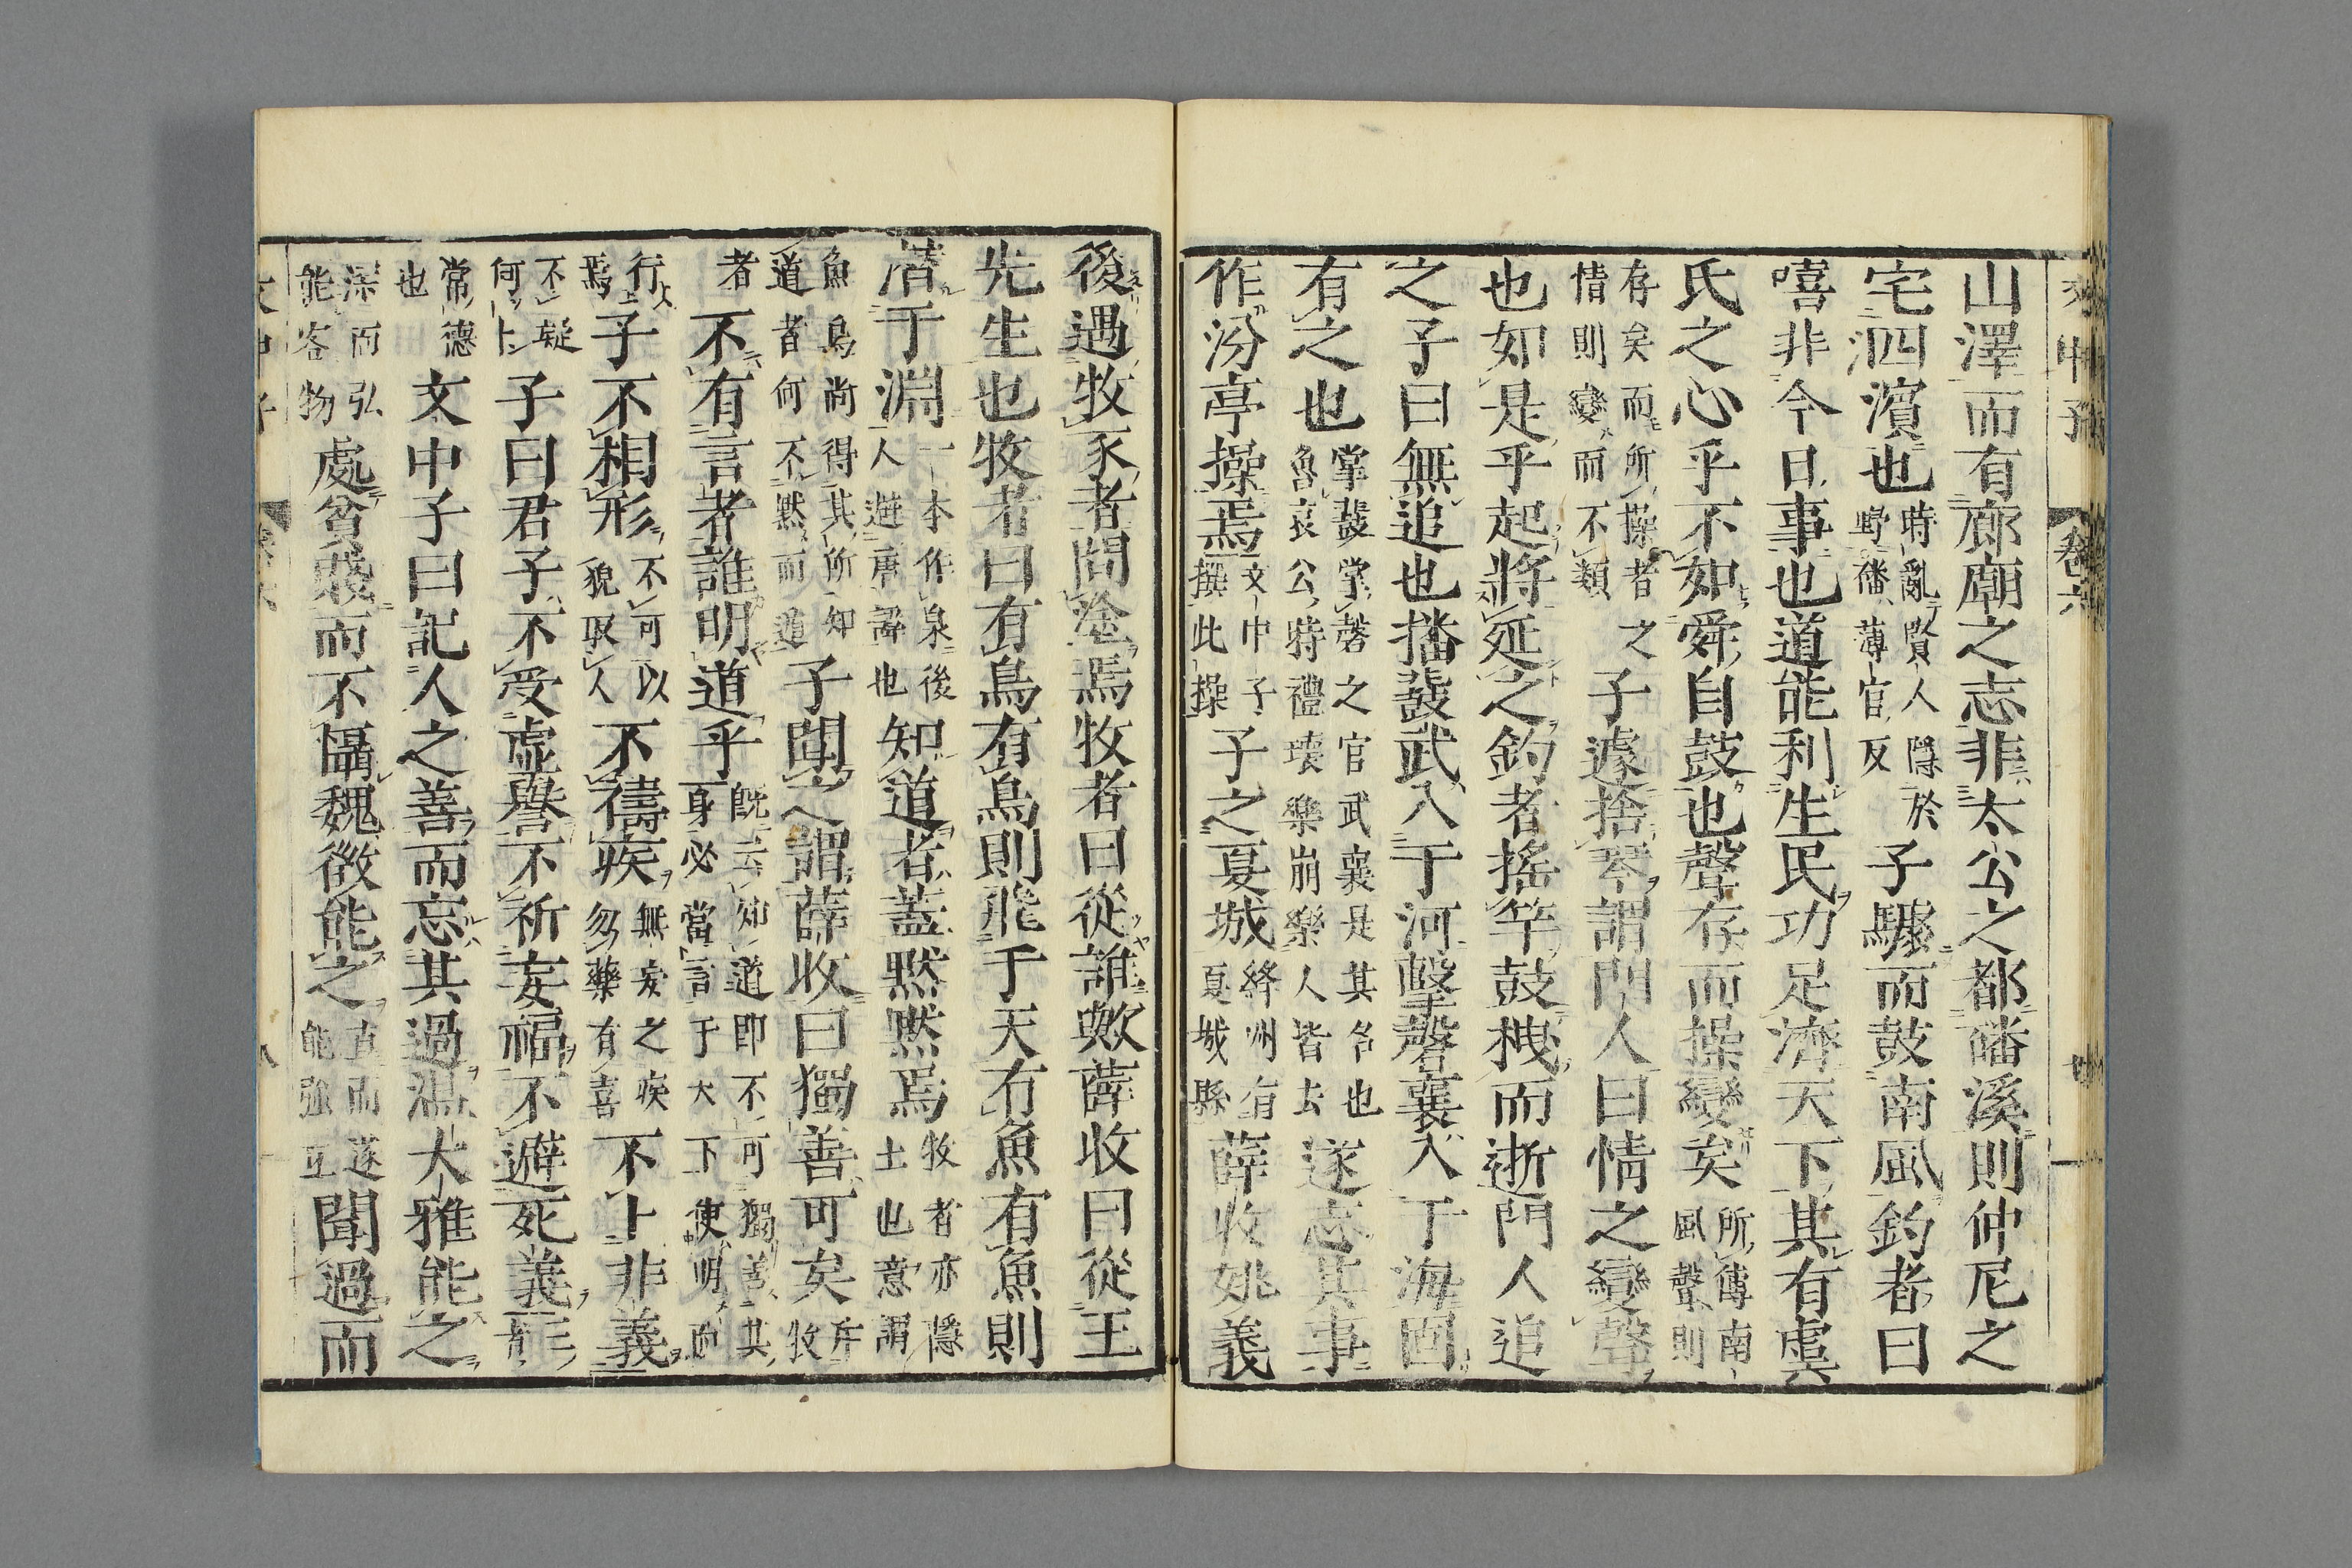 文中子 卷六 廿
山澤而有廊廟之志非太公之都磻溪則仲尼之
宅泗濱也時亂賢人隱於野磻薄官反子驟而鼓南風釣者曰
嘻非今日事也道能利生民功足濟天下其有虞
氏之心乎不如舜自鼓也聲存而操變矣所傳南風聲則
存矣而所操者之情則變而不類子遽捨琴謂門人曰情之變聲
也如是乎起將延之釣者搖竿鼓栧而逝門人追
之子曰無追也播鼗武入于河擊磬襄入于海固
有之也掌鼗掌磬之官武襄是其名也魯哀公時禮壞樂崩樂人皆去遂志其事
作汾亭操焉文中子撰此操子之夏城絳州有夏城縣薛收姚義
後遇牧豕者問塗焉牧者曰從誰歟薛收曰從王
先生也牧者曰有鳥有鳥則飛于天有魚有魚則
潛于淵一本作泉後人避唐諱也知道者蓋默默焉牧者亦隱士也意謂
魚鳥尚得其所知道者何不默而遁子聞之謂薛收曰獨善可矣斥牧
者不有言者誰明道乎既云知道即不可獨善其身必當言于天下使明而
行焉子不相形不可以貌取人不禱疾無妄之疾勿藥有喜不卜非義
不疑何卜子曰君子不受虛譽不祈妄福不避死義三者
常德也文中子曰記人之善而忘其過溫大雅能之
深而弘能容物處貧賤而不懾魏徵能之直而遂能強正聞過而
文中子